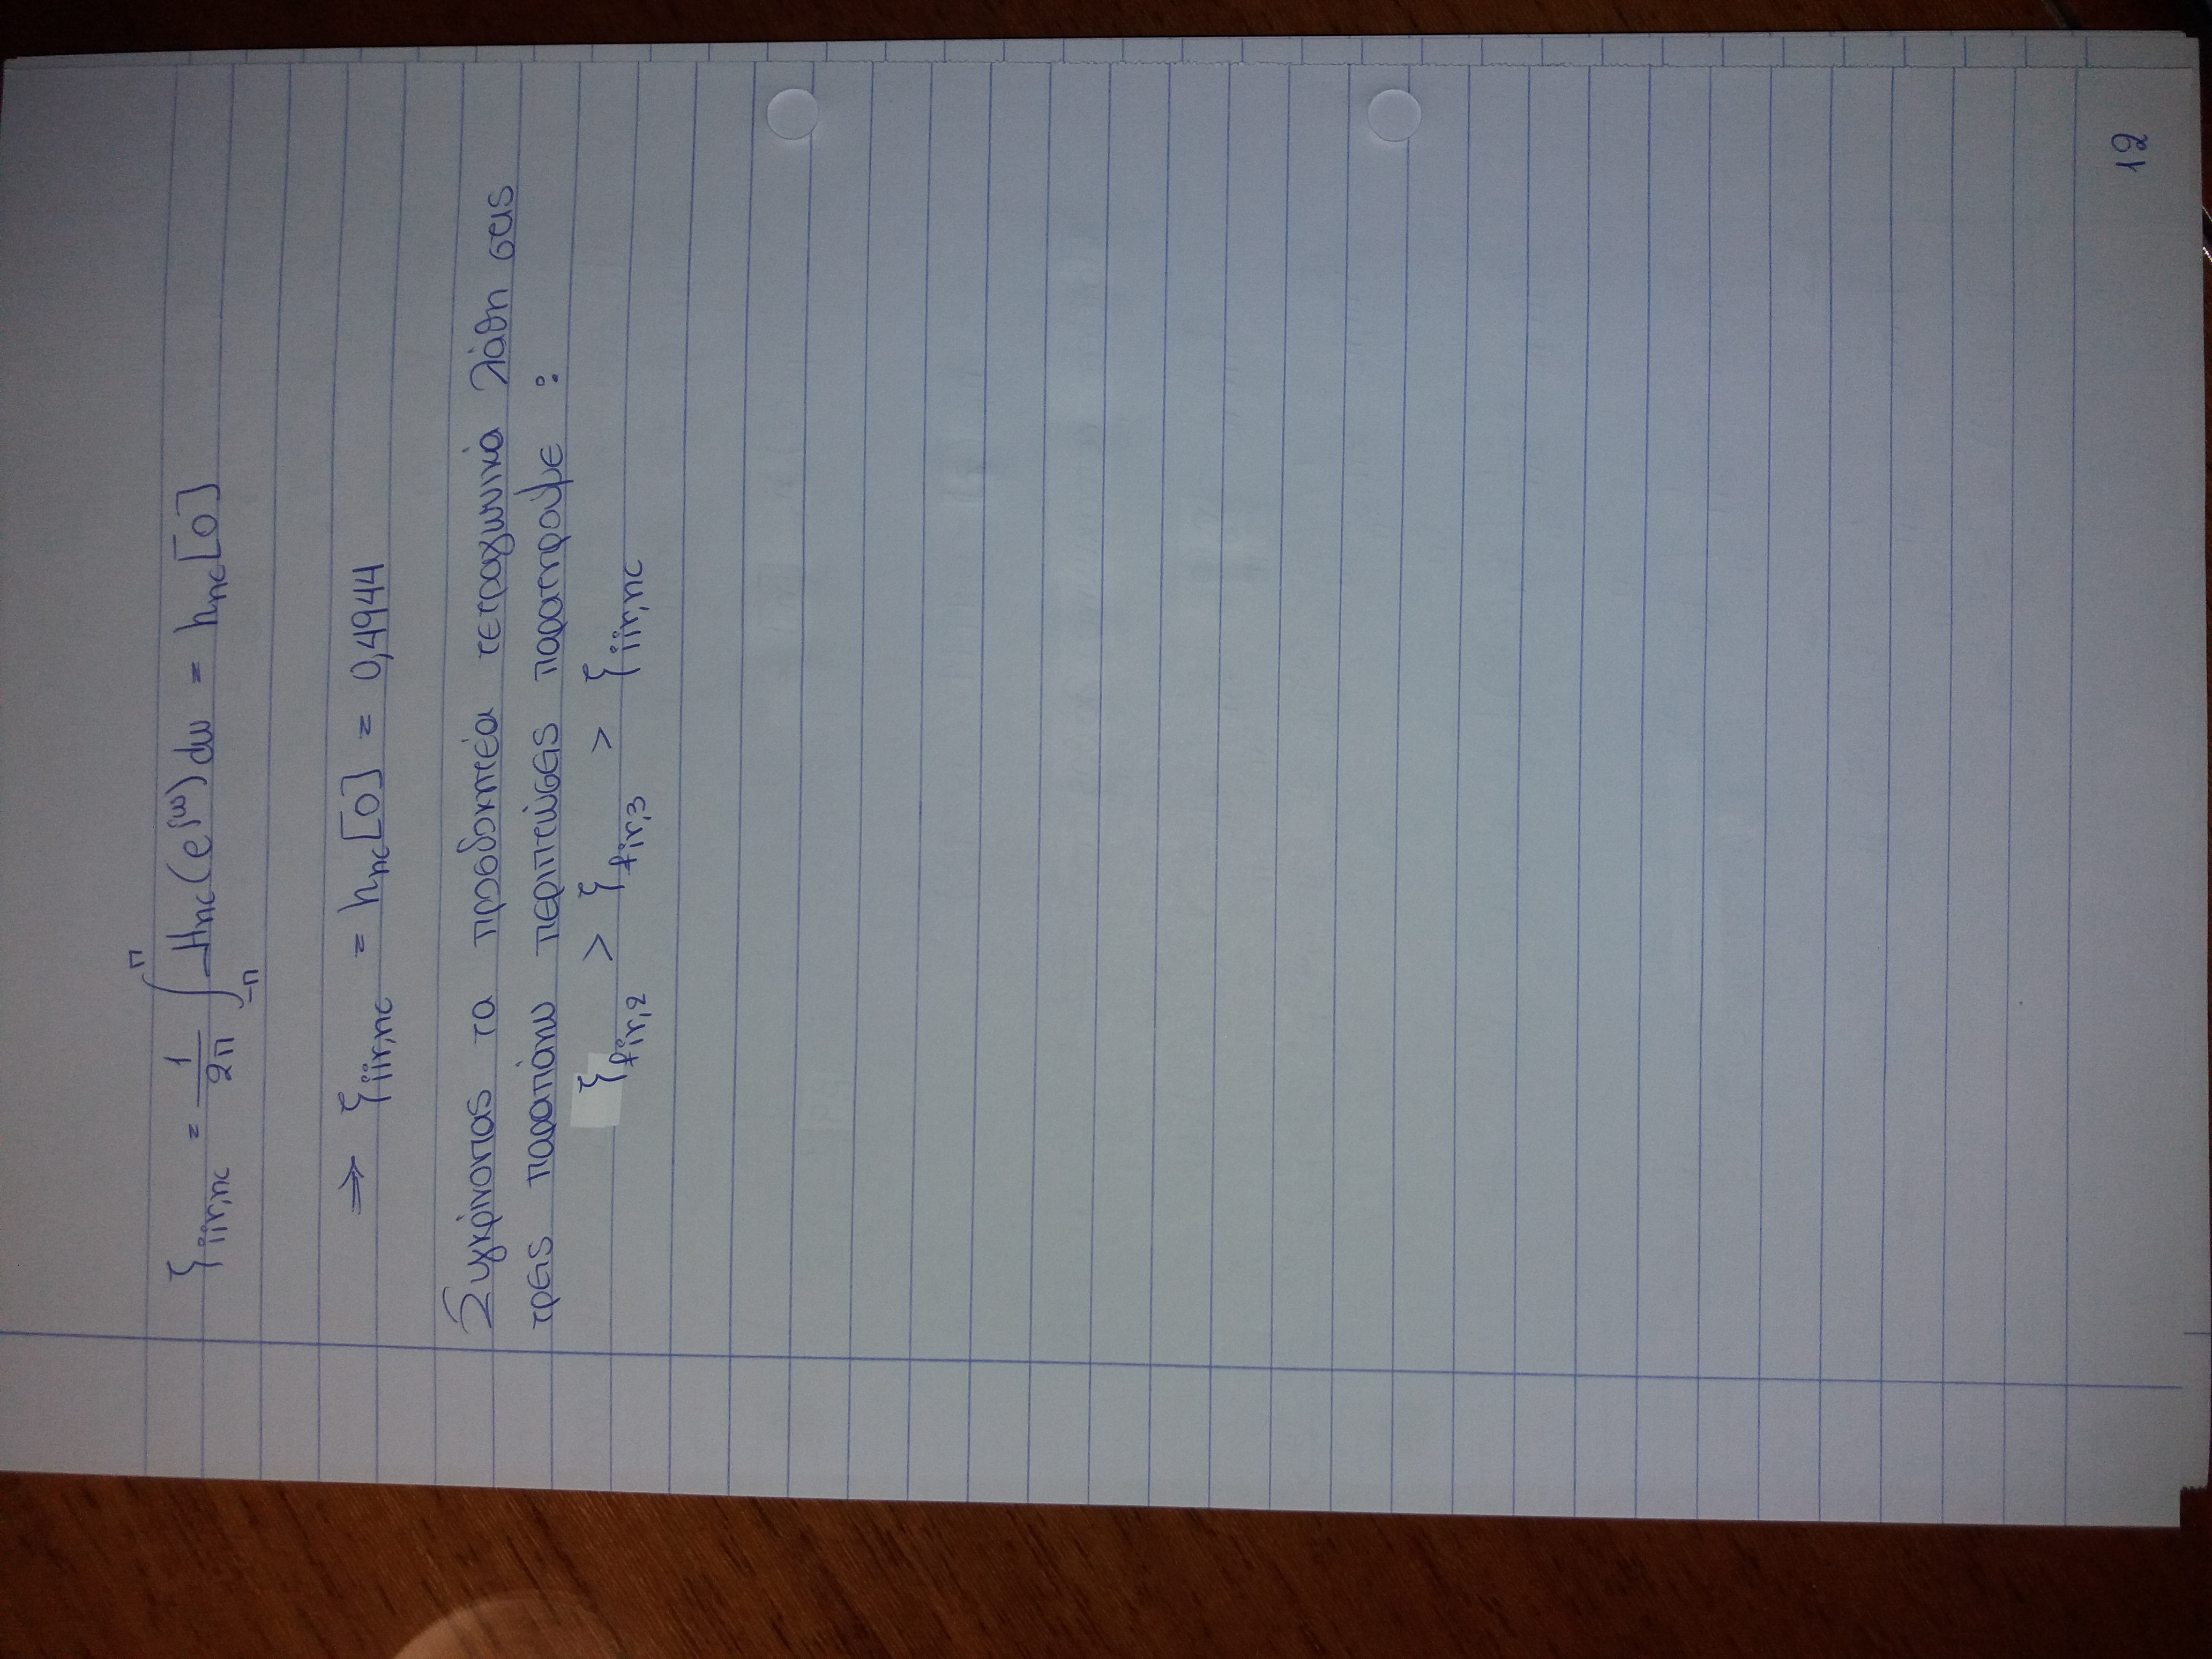 ξ_{iir,nc} = \frac{1}{2π} \int_{-π}^{π} H_{nc}(e^{jω}) dω = h_{nc}[0]
⇒ ξ_{iir,nc} = h_{nc}[0] = 0,4944
Συγκρίνοντας τα προσδοκητέα τετραγωνικά λάθη στις
τρεις παραπάνω περιπτώσεις παρατηρούμε :
ξ_{fir,2} > ξ_{fir,3} > ξ_{iir,nc}
12